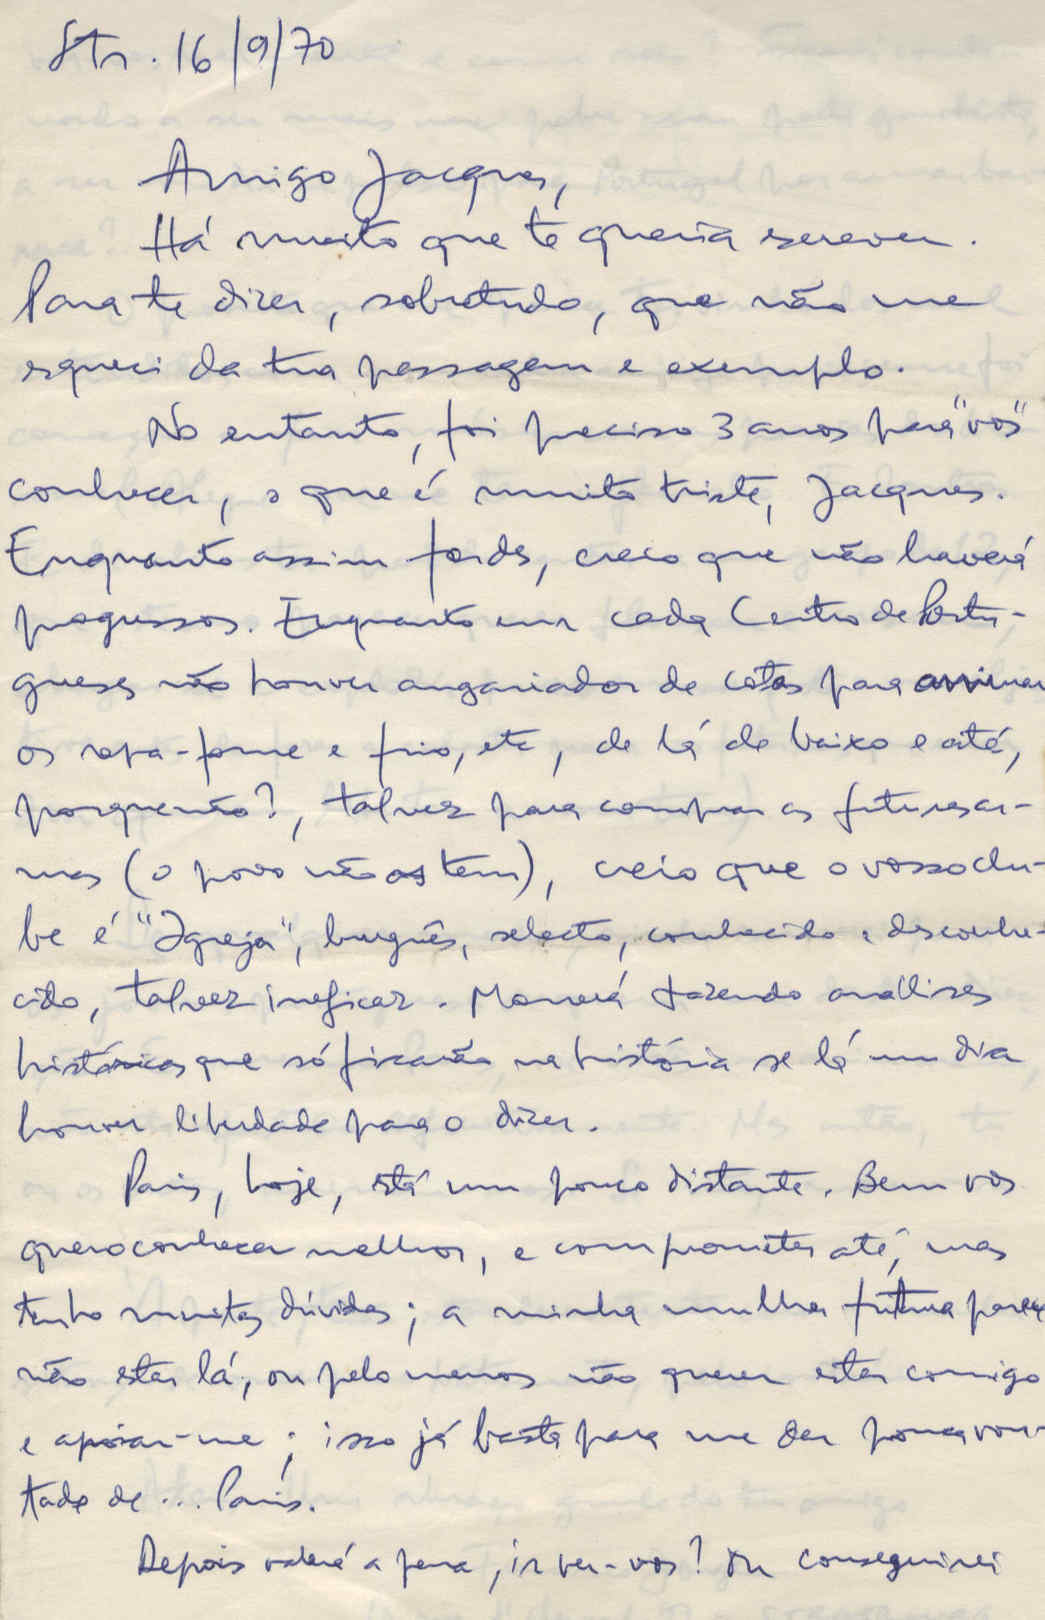 Str. 16/9/70
Amigo Jacques,
Há muito que te queria escrever.
Para te dizer, sobretudo, que não me
esqueci da tua passagem e exemplo.
No entanto, foi preciso 3 anos para "vos"
conhecer, o que é muito triste, Jacques.
Enquanto assim fordes, creio que não haverá
progressos. Enquanto em cada Centro de Portu-
gueses não houver angariador de cotas para animar
os rapa-fome e frio, etc, de lá de baixo e até,
porque não?, talvez para comprar as futuras ar-
mas (o povo não as tem), creio que o vosso clu-
be é "Igreja", burguês, selecto, conhecido e desconhe-
cido, talvez ineficaz. Morrerá fazendo análises
históricas que só ficarão na história se lá um dia
houver liberdade para o dizer.
Paris, hoje, está um pouco distante. Bem vos
quero conhecer melhor, e comprometer até, mas
tenho muitas dúvidas; a minha mulher futura parece
não estar lá, ou pelo menos não querer estar comigo
e apoiar-me; isso já basta para me dar pouca von-
tade de ... Paris.
Depois valerá a pena, ir ver-vos? Ou conseguirei